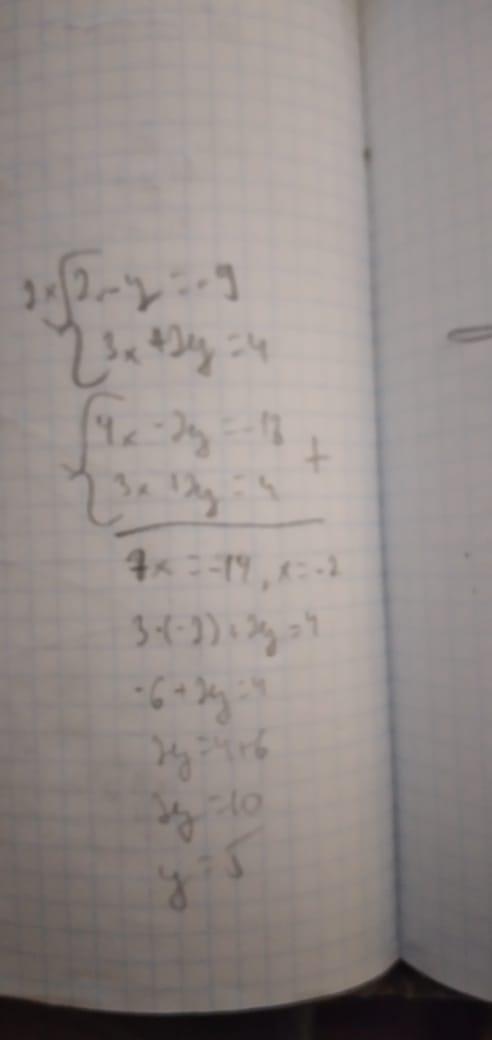 2× { 2x - y = -9
3x + 2y = 4
{ 4x - 2y = -18
3x + 2y = 4 +
7x = -14, x = -2
3·(-2) + 2y = 4
-6 + 2y = 4
2y = 4+6
2y = 10
y = 5